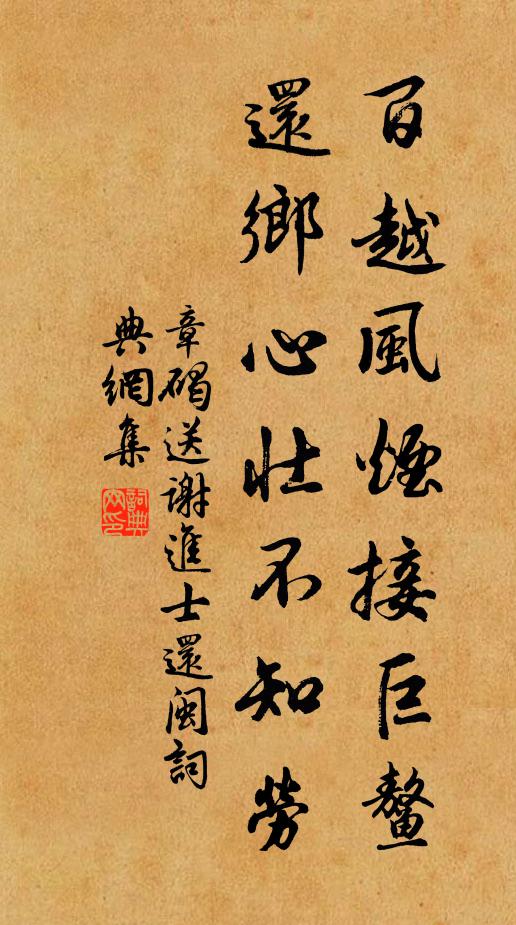 百越風煙接巨鰲
還鄉心壯不知勞
章碣送謝進士還閩詞
典網集
詞典網印